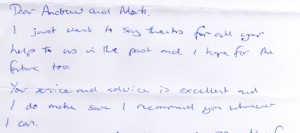 Dear Andrew and Mark.
I just want to say thanks for all your
help to us in the past and I hope for the
future too
Your service and advice is excellent and
I do make sure I recommend you whenever
I can.